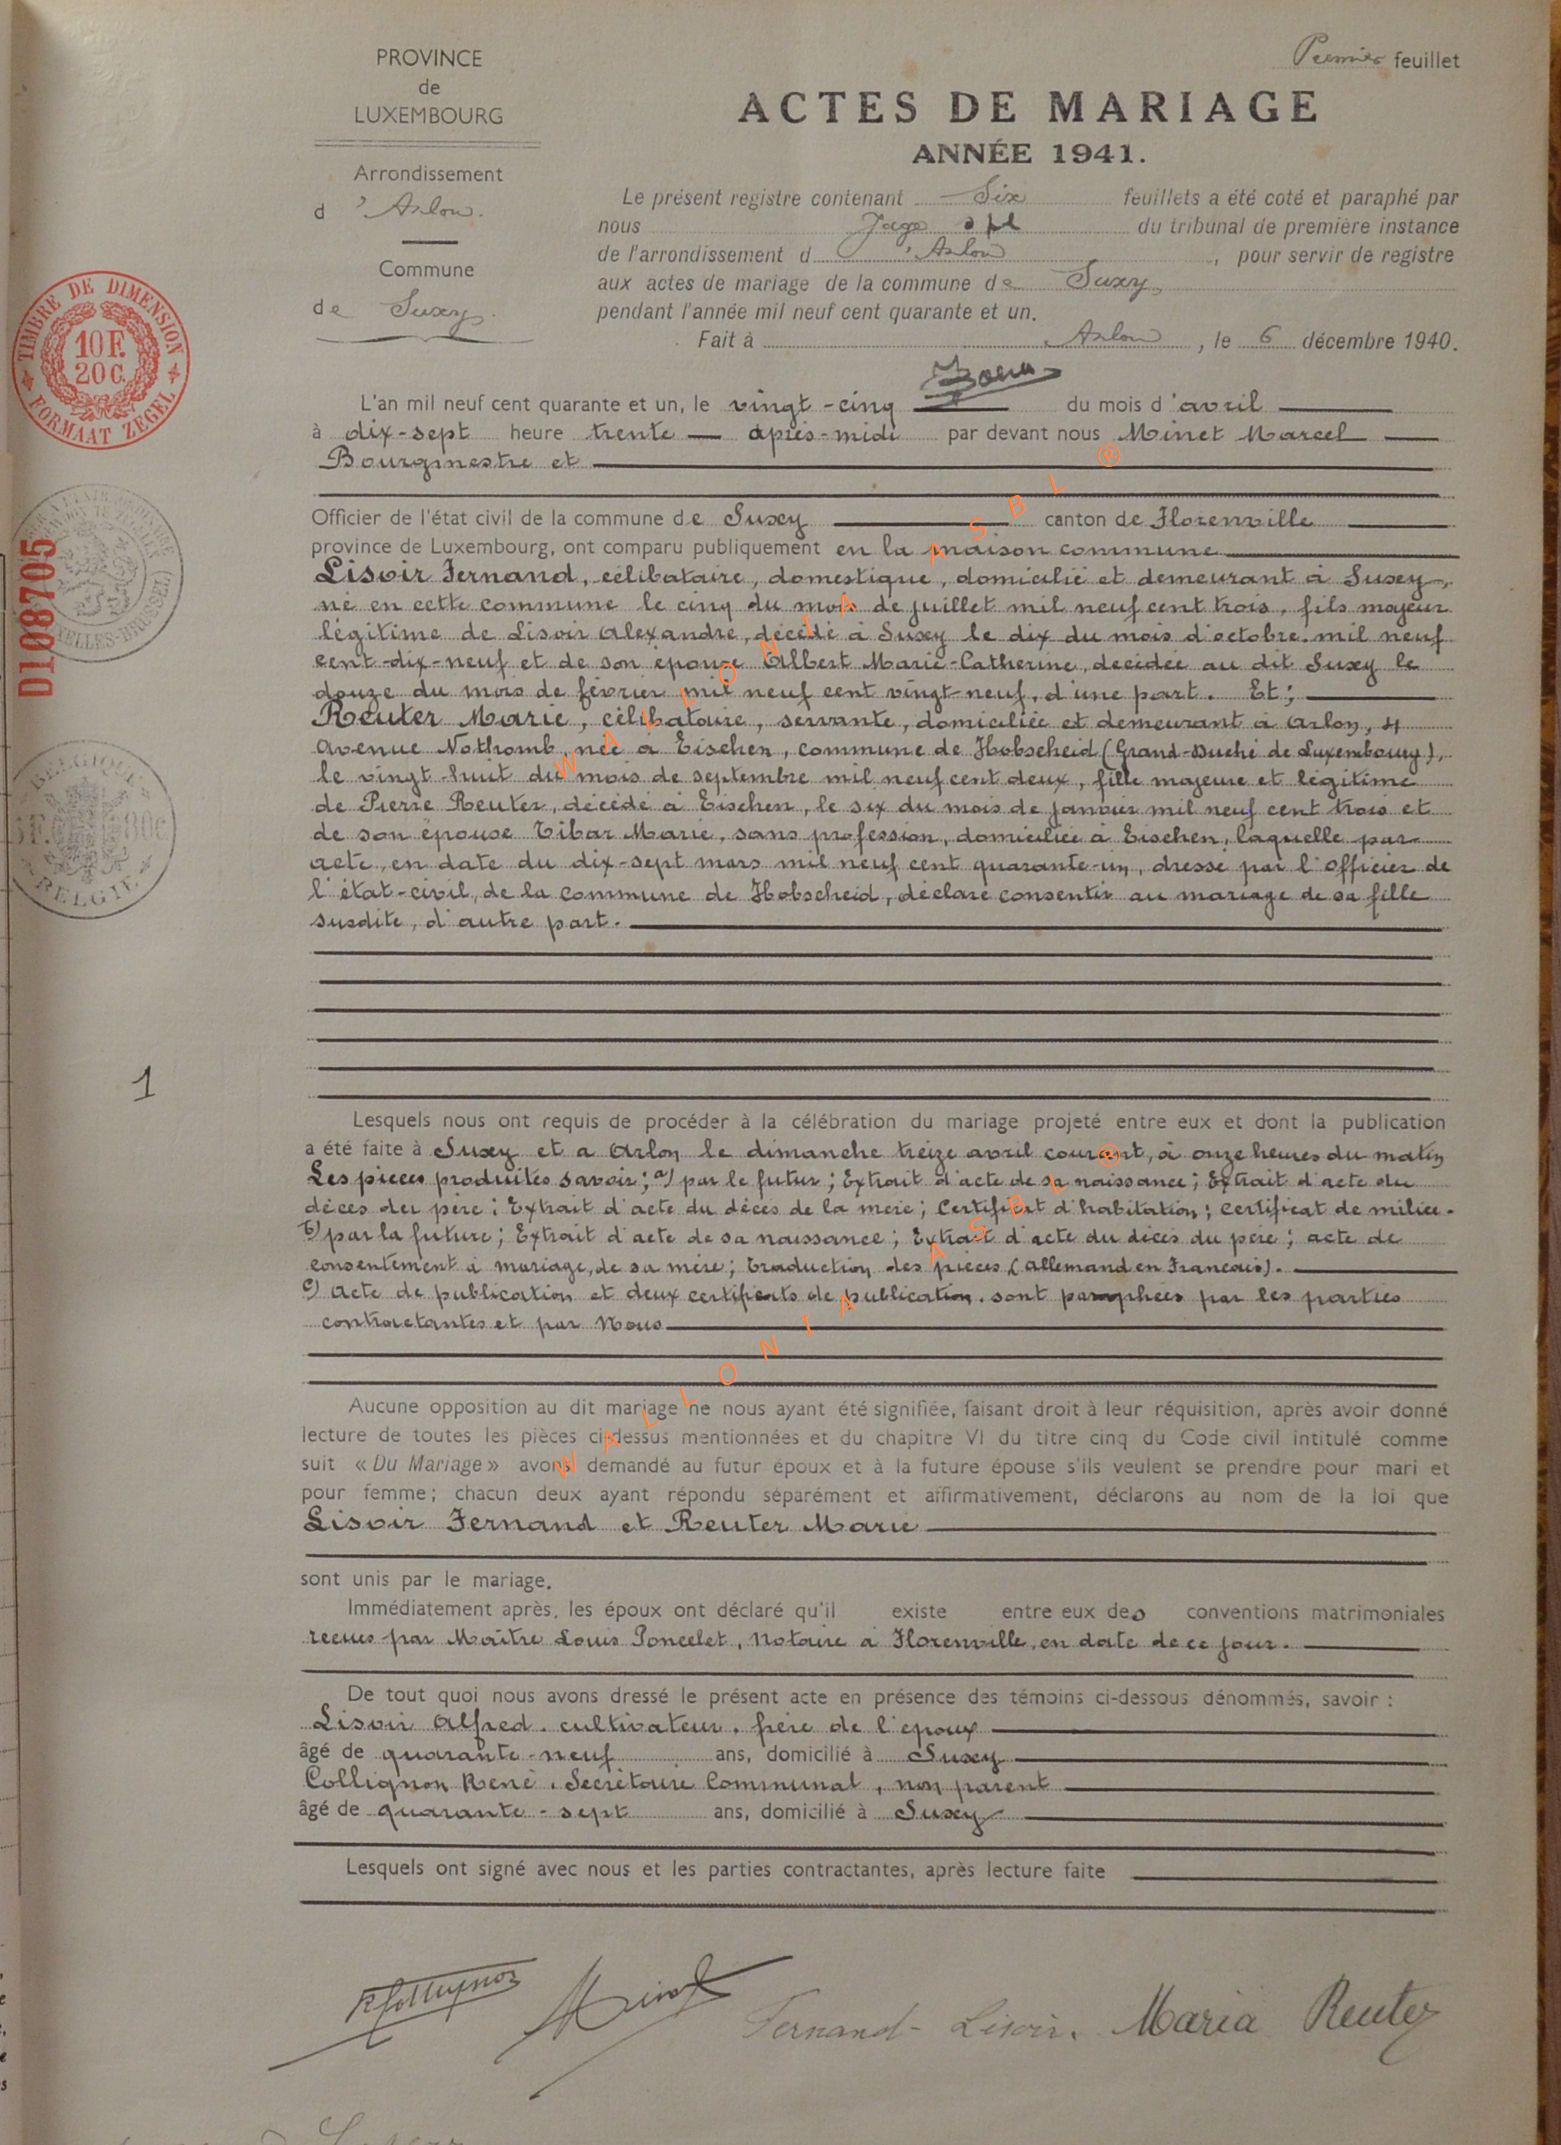 PROVINCE
de
LUXEMBOURG
Arrondissement
d 'Arlon.
Commune
de Suxy.
Premier feuillet
ACTES DE MARIAGE
ANNÉE 1941.
Le présent registre contenant Six feuillets a été coté et paraphé par
nous Juge du tribunal de première instance
de l'arrondissement d 'Arlon, pour servir de registre
aux actes de mariage de la commune de Suxy,
pendant l'année mil neuf cent quarante et un.
Fait à Arlon, le 6 décembre 1940.
TIMBRE DE DIMENSION
10 F.
20 C.
FORMAAT ZEGEL
D108705
BELGIQUE
BELGIE
L'an mil neuf cent quarante et un, le vingt-cinq du mois d'avril
à dix-sept heure trente après-midi par devant nous Minet Marcel
Bourgmestre et
Officier de l'état civil de la commune de Suxy canton de Florenville
province de Luxembourg, ont comparu publiquement en la maison commune
Lisoir Fernand, célibataire, domestique, domicilié et demeurant à Suxy,
né en cette commune le cinq du mois de juillet mil neuf cent trois, fils majeur
légitime de Lisoir Alexandre, décédé à Suxy le dix du mois d'octobre mil neuf
cent dix-neuf et de son épouse Albert Marie-Catherine, décédée au dit Suxy le
douze du mois de février mil neuf cent vingt-neuf, d'une part. Et;
Reuter Marie, célibataire, servante, domiciliée et demeurant à Arlon, 4
Avenue Nothomb, née à Eischen, commune de Hobscheid (Grand-Duché de Luxembourg),
le vingt-huit du mois de septembre mil neuf cent deux, fille majeure et légitime
de Pierre Reuter, décédé à Eischen, le six du mois de janvier mil neuf cent trois et
de son épouse Tibar Marie, sans profession, domiciliée à Eischen, laquelle par
acte, en date du dix-sept mars mil neuf cent quarante-un, dressé par l'Officier de
l'état-civil, de la commune de Hobscheid, déclare consentir au mariage de sa fille
susdite, d'autre part.
1
Lesquels nous ont requis de procéder à la célébration du mariage projeté entre eux et dont la publication
a été faite à Suxy et a Arlon le dimanche treize avril courant, à onze heures du matin
Les pièces produites savoir; a) par le futur; Extrait d'acte de sa naissance; Extrait d'acte du
décès du père; Extrait d'acte du décès de la mère; Certificat d'habitation; certificat de milice.
b) par la future; Extrait d'acte de sa naissance; Extrait d'acte du décès du père; acte de
consentement à mariage, de sa mère; traduction des pièces (allemand en Francais).
c) Acte de publication et deux certificats de publication. sont paraphées par les parties
contractantes et par Nous
Aucune opposition au dit mariage ne nous ayant été signifiée, faisant droit à leur réquisition, après avoir donné
lecture de toutes les pièces ci-dessus mentionnées et du chapitre VI du titre cinq du Code civil intitulé comme
suit « Du Mariage » avons demandé au futur époux et à la future épouse s'ils veulent se prendre pour mari et
pour femme; chacun deux ayant répondu séparément et affirmativement, déclarons au nom de la loi que
Lisoir Fernand et Reuter Marie
sont unis par le mariage.
Immédiatement après, les époux ont déclaré qu'il existe entre eux des conventions matrimoniales
recues par Maître Louis Poncelet, Notaire à Florenville, en date de ce jour.
De tout quoi nous avons dressé le présent acte en présence des témoins ci-dessous dénommés, savoir :
Lisoir Alfred, cultivateur, frère de l'époux
âgé de quarante-neuf ans, domicilié à Suxy
Collignon René, Secrétaire Communal, non parent
âgé de quarante-sept ans, domicilié à Suxy
Lesquels ont signé avec nous et les parties contractantes, après lecture faite
R Collignon Minet Fernand Lisoir. Maria Reuter
WALLONIA ASBL ®
WALLONIA ASBL ®